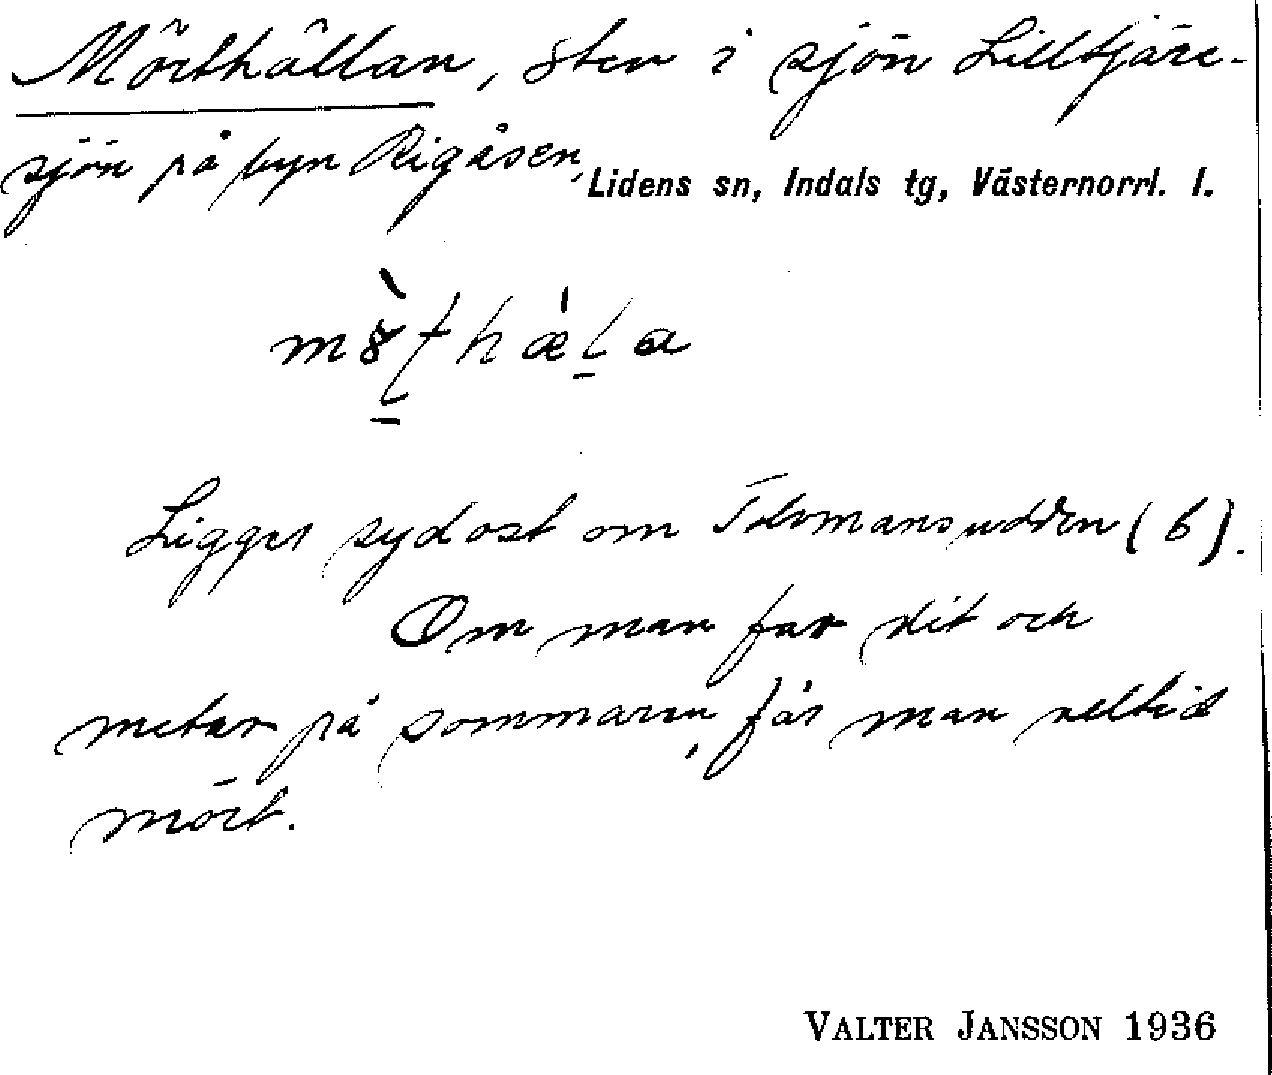 Mörthällan, sten i sjön Lilltjäre-
sjön på byn Rigåsen,
Lidens sn, Indals tg, Västernorrl. l.
Ligger sydost om Tolvmansudden (6).
Om man far dit och
metar på sommaren, får man alltid
mört.
VALTER JANSSON 1936